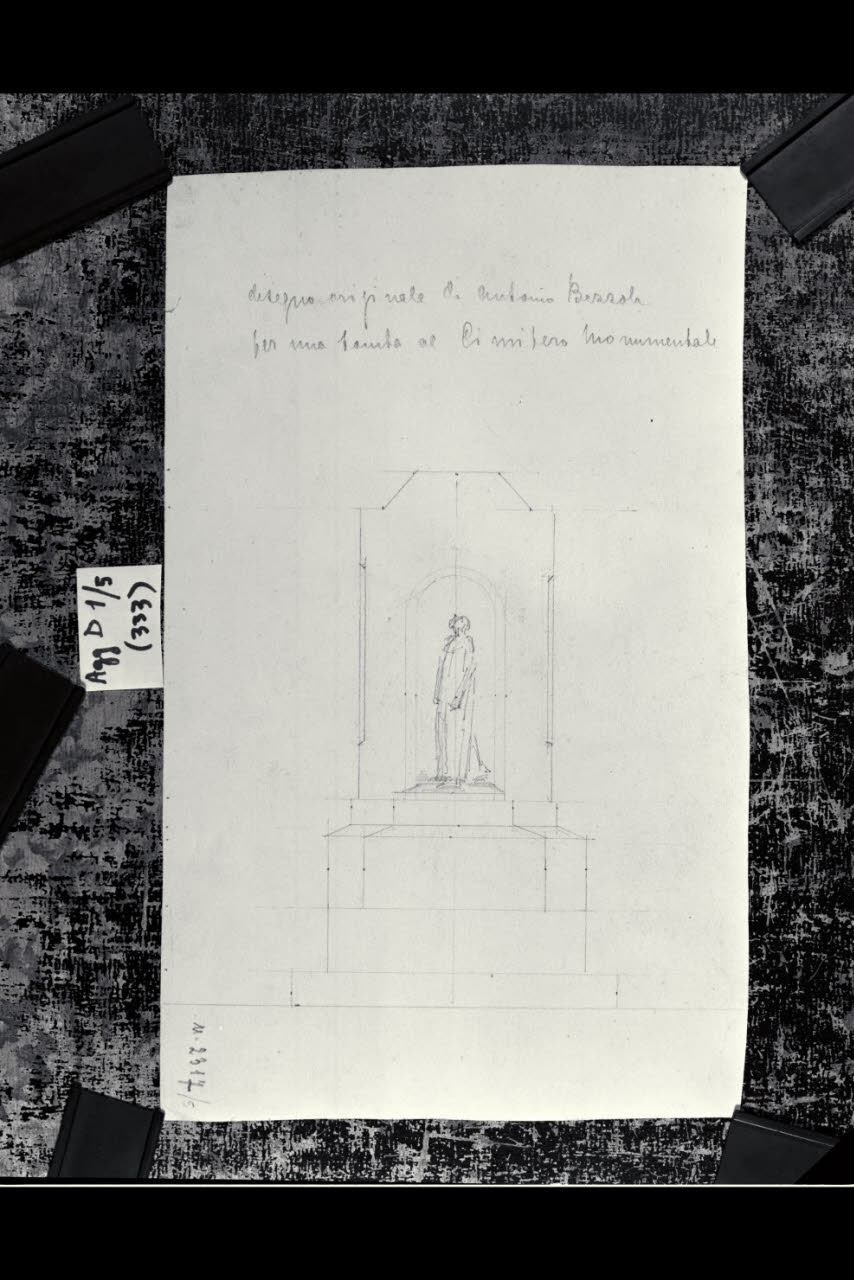 disegno originale di Antonio Bezzola
per una tomba al Cimitero Monumentale
Agg D 1/5
(333)
N. 2317/5